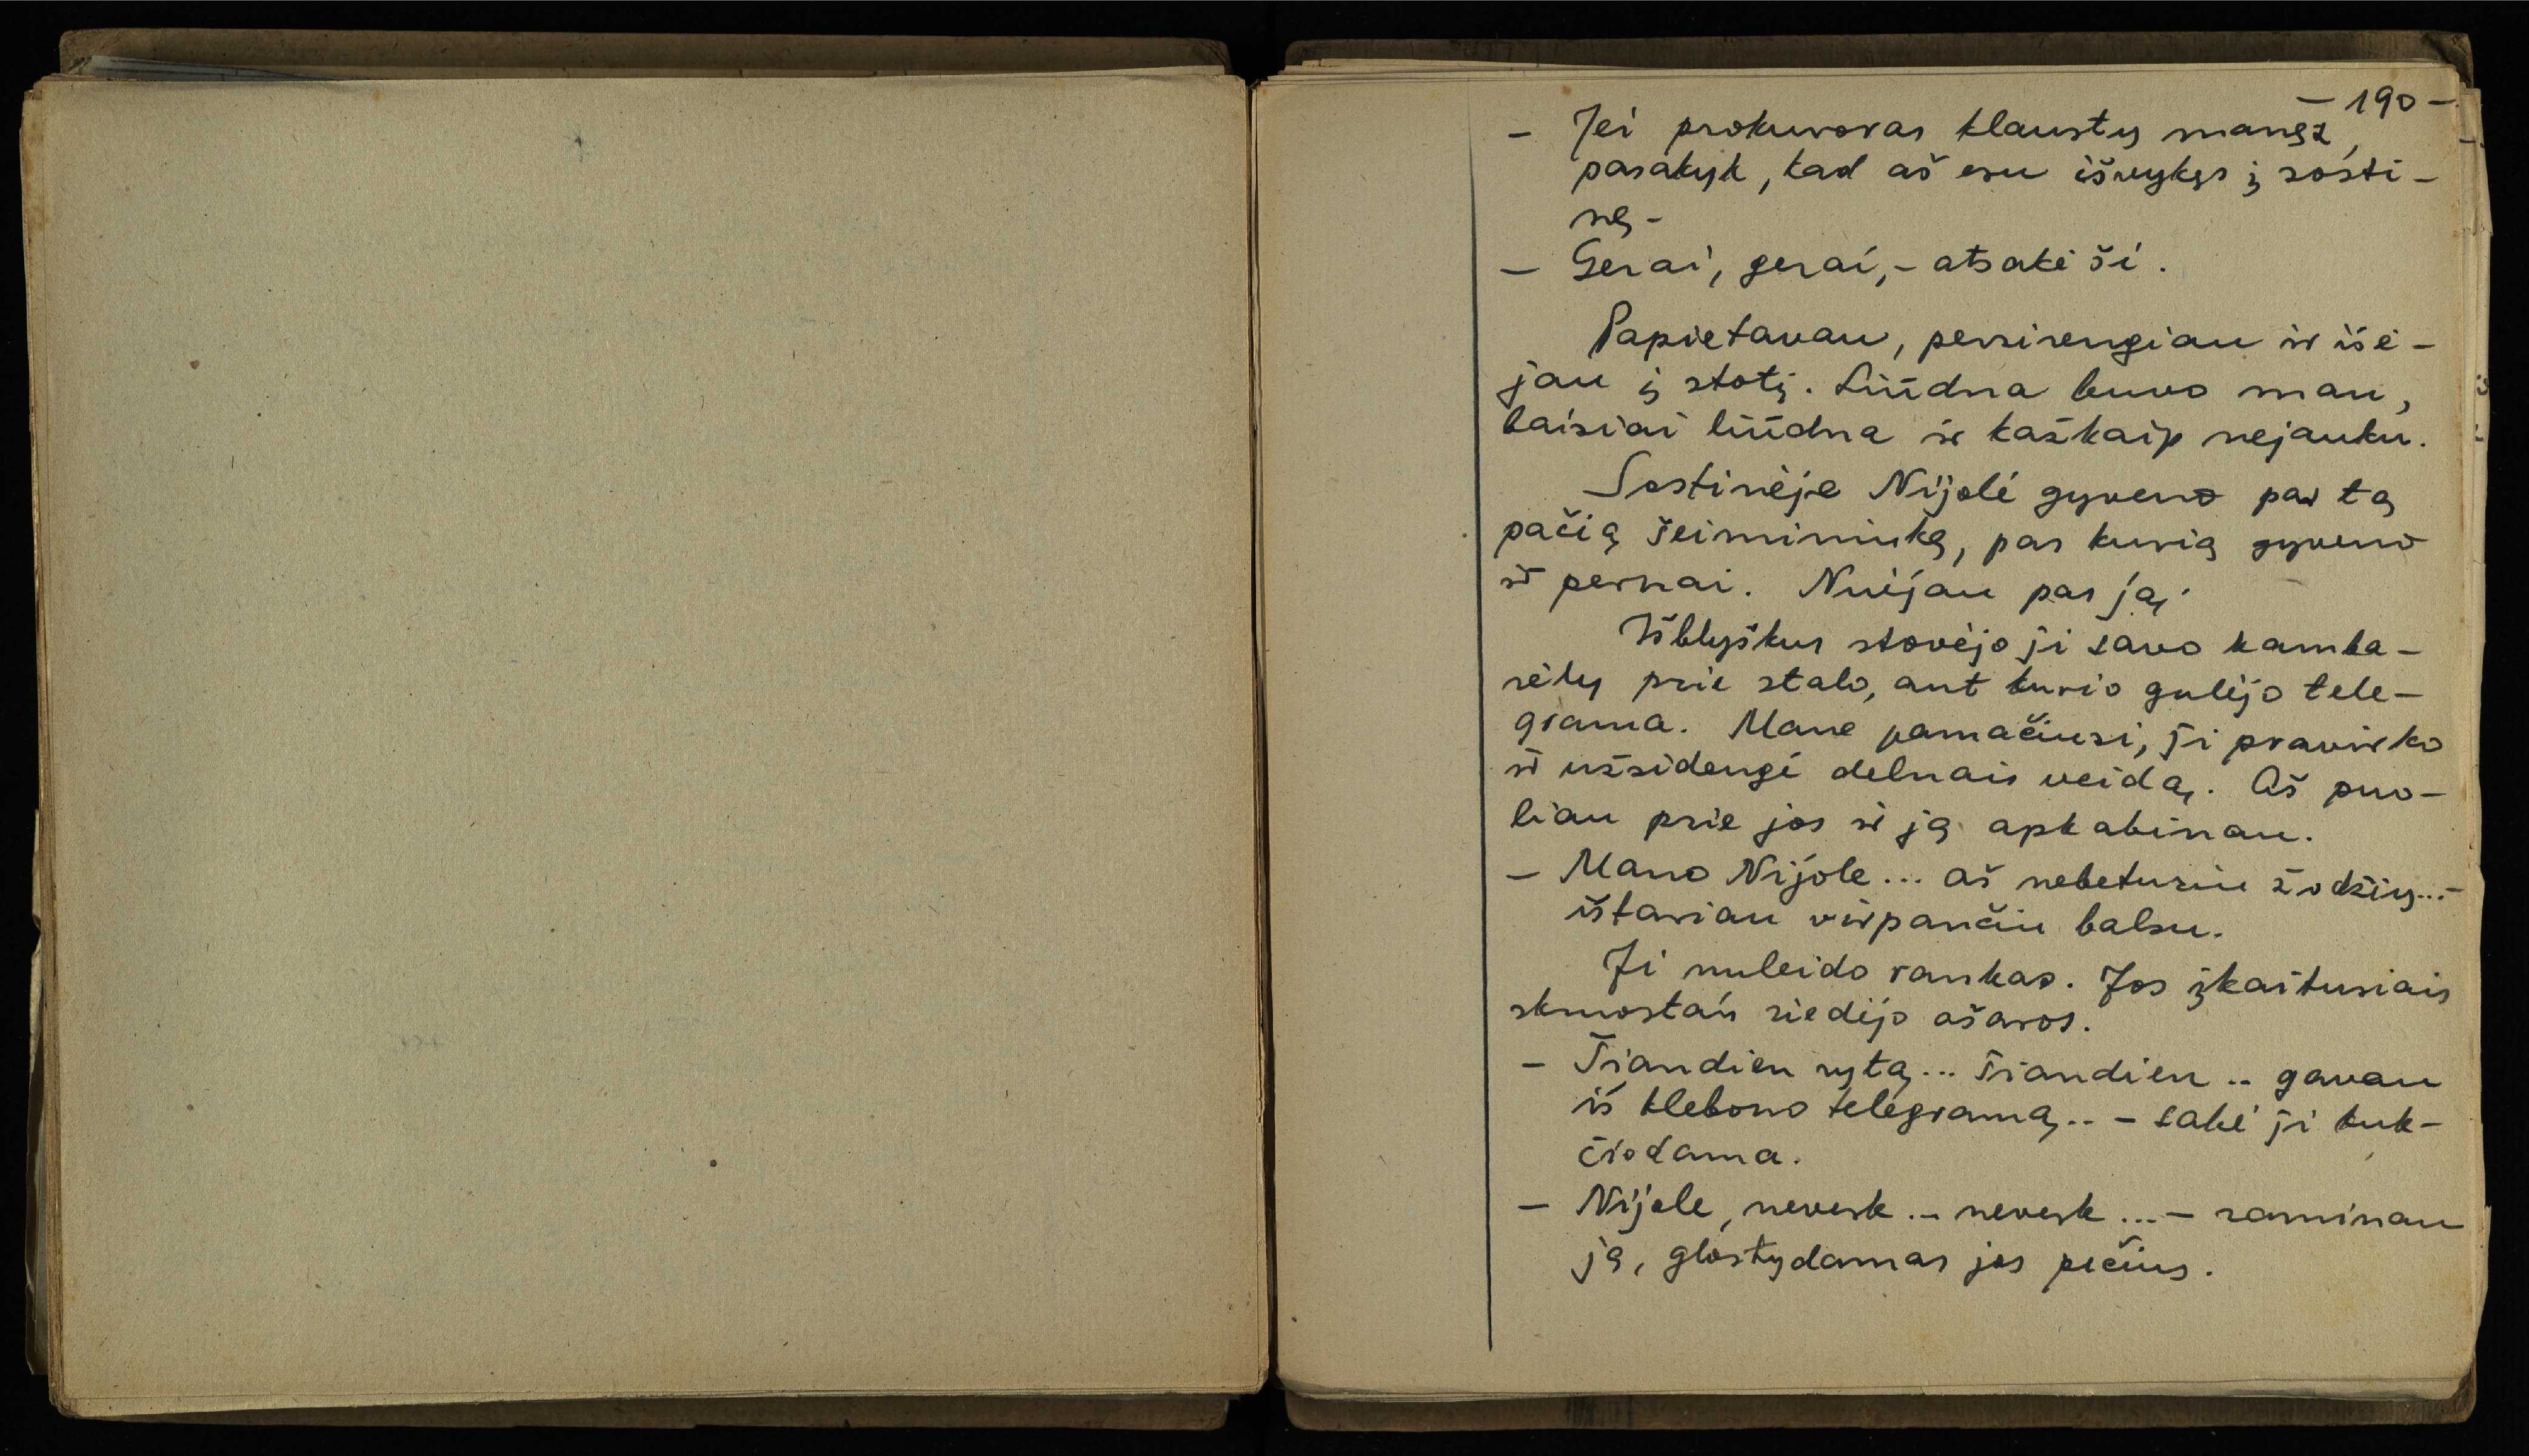 - 190 -
- Jei prokuroras klaustų manęs,
pasakyk, kad aš esu išvykęs į sosti-
nę -
- Gerai, gerai, - atsakė ši.
Papietavau, persirengiau ir išė-
jau į stotį. Liūdna buvo man,
baisiai liūdna ir kažkaip nejauku.
Sostinėje Nijolė gyveno pas tą
pačią šeimininkę, pas kurią gyveno
ir pernai. Nuėjau pas ją.
Išblyškus stovėjo ji savo kamba-
rėly prie stalo, ant kurio gulėjo tele-
grama. Mane pamačiusi, ji pravirko
ir užsidengė delnais veidą. Aš puo-
liau prie jos ir ją apkabinau.
- Mano Nijole... aš nebeturiu žodžių... -
ištariau virpančiu balsu.
Ji nuleido rankas. Jos įkaitusiais
skruostais riedėjo ašaros.
- Šiandien rytą... šiandien.. gavau
iš klebono telegramą.. - sakė ji kuk-
čiodama.
- Nijole, neverk... neverk... - raminau
ją, glostydamas jos pečius.